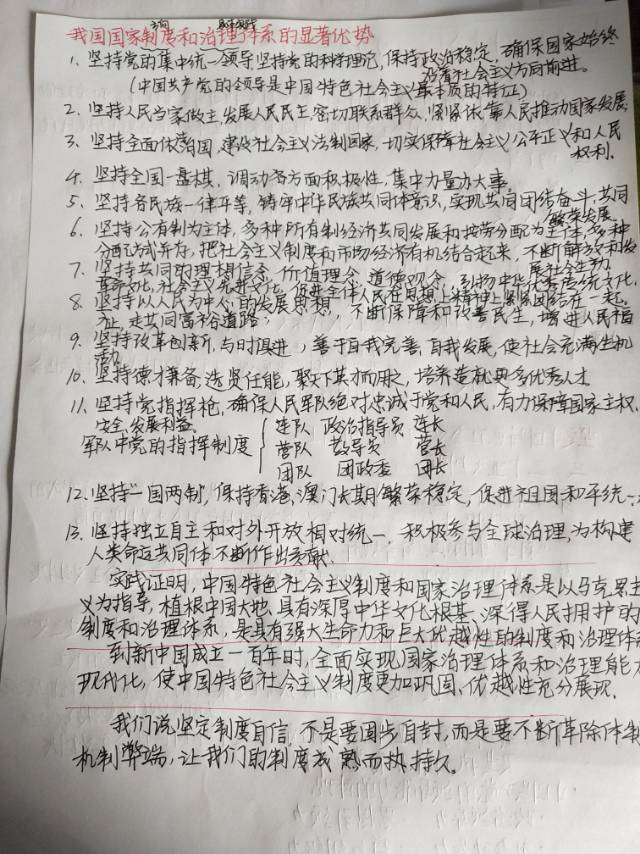 我国国家制度和治理体系的显著优势
1、坚持党的集中统一领导坚持党的科学理论,保持政治稳定,确保国家始终
沿着社会主义方向前进。
(中国共产党的领导是中国特色社会主义最本质的特征)
2、坚持人民当家做主,发展人民民主,密切联系群众,紧紧依靠人民推动国家发展
3、坚持全面依法治国,建设社会主义法制国家,切实保障社会主义公平正义和人民
权利.
4、坚持全国一盘棋,调动各方面积极性,集中力量办大事
5、坚持各民族一律平等,铸牢中华民族共同体意识,实现共同团结奋斗,共同
繁荣发展
6、坚持公有制为主体,多种所有制经济共同发展和按劳分配为主体,多种
分配方式并存,把社会主义制度和市场经济有机结合起来,不断解放和发
展社会生产力
7、坚持共同的理想信念,价值理念,道德观念,弘扬中华优秀传统文化,
革命文化,社会主义先进文化,促进全体人民在思想上精神上紧紧团结在一起
8、坚持以人民为中心的发展思想,不断保障和改善民生,增进人民福
祉,走共同富裕道路;
9、坚持改革创新,与时俱进,善于自我完善,自我发展,使社会充满生机
活力
10、坚持德才兼备,选贤任能,聚天下英才而用之,培养造就更多优秀人才
11、坚持党指挥枪,确保人民军队绝对忠诚于党和人民,有力保障国家主权、
安全、发展利益。
军队中党的指挥制度
连队 政治指导员 连长
营队 教导员 营长
团队 团政委 团长
12、坚持"一国两制,保持香港,澳门长期繁荣稳定,促进祖国和平统一
13、坚持独立自主和对外开放相对统一,积极参与全球治理,为构建
人类命运共同体不断作出贡献.
实践证明,中国特色社会主义制度和国家治理体系是以马克思主
义为指导,植根中国大地、具有深厚中华文化根基、深得人民拥护的
制度和治理体系,是具有强大生命力和巨大优越性的制度和治理体系
到新中国成立一百年时,全面实现国家治理体系和治理能力
现代化,使中国特色社会主义制度更加巩固、优越性充分展现.
我们说坚定制度自信,不是要固步自封,而是要不断革除体制
机制弊端,让我们的制度成熟而持久。